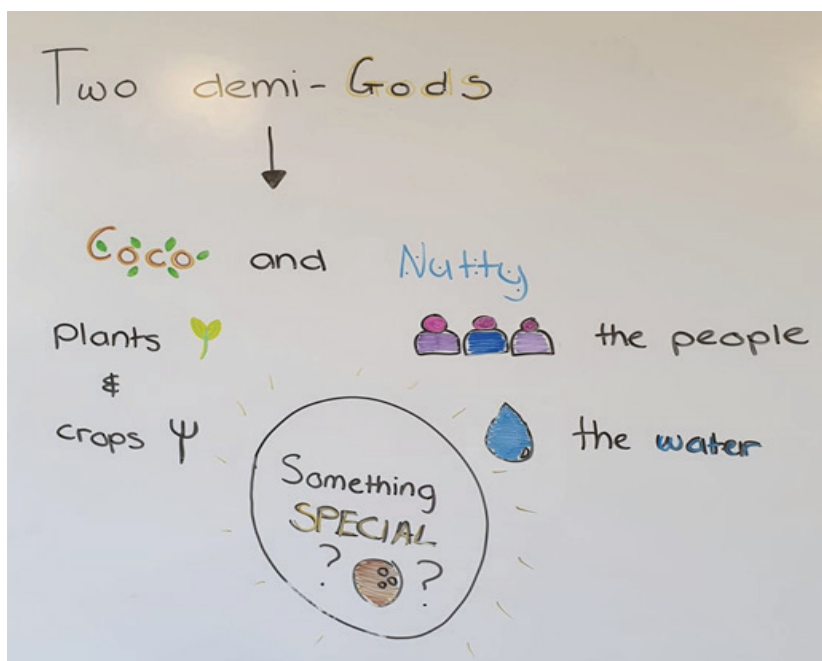 Two demi-Gods
Coco and Natty
plants the people
&
crops the water
Something
SPECIAL
? ?